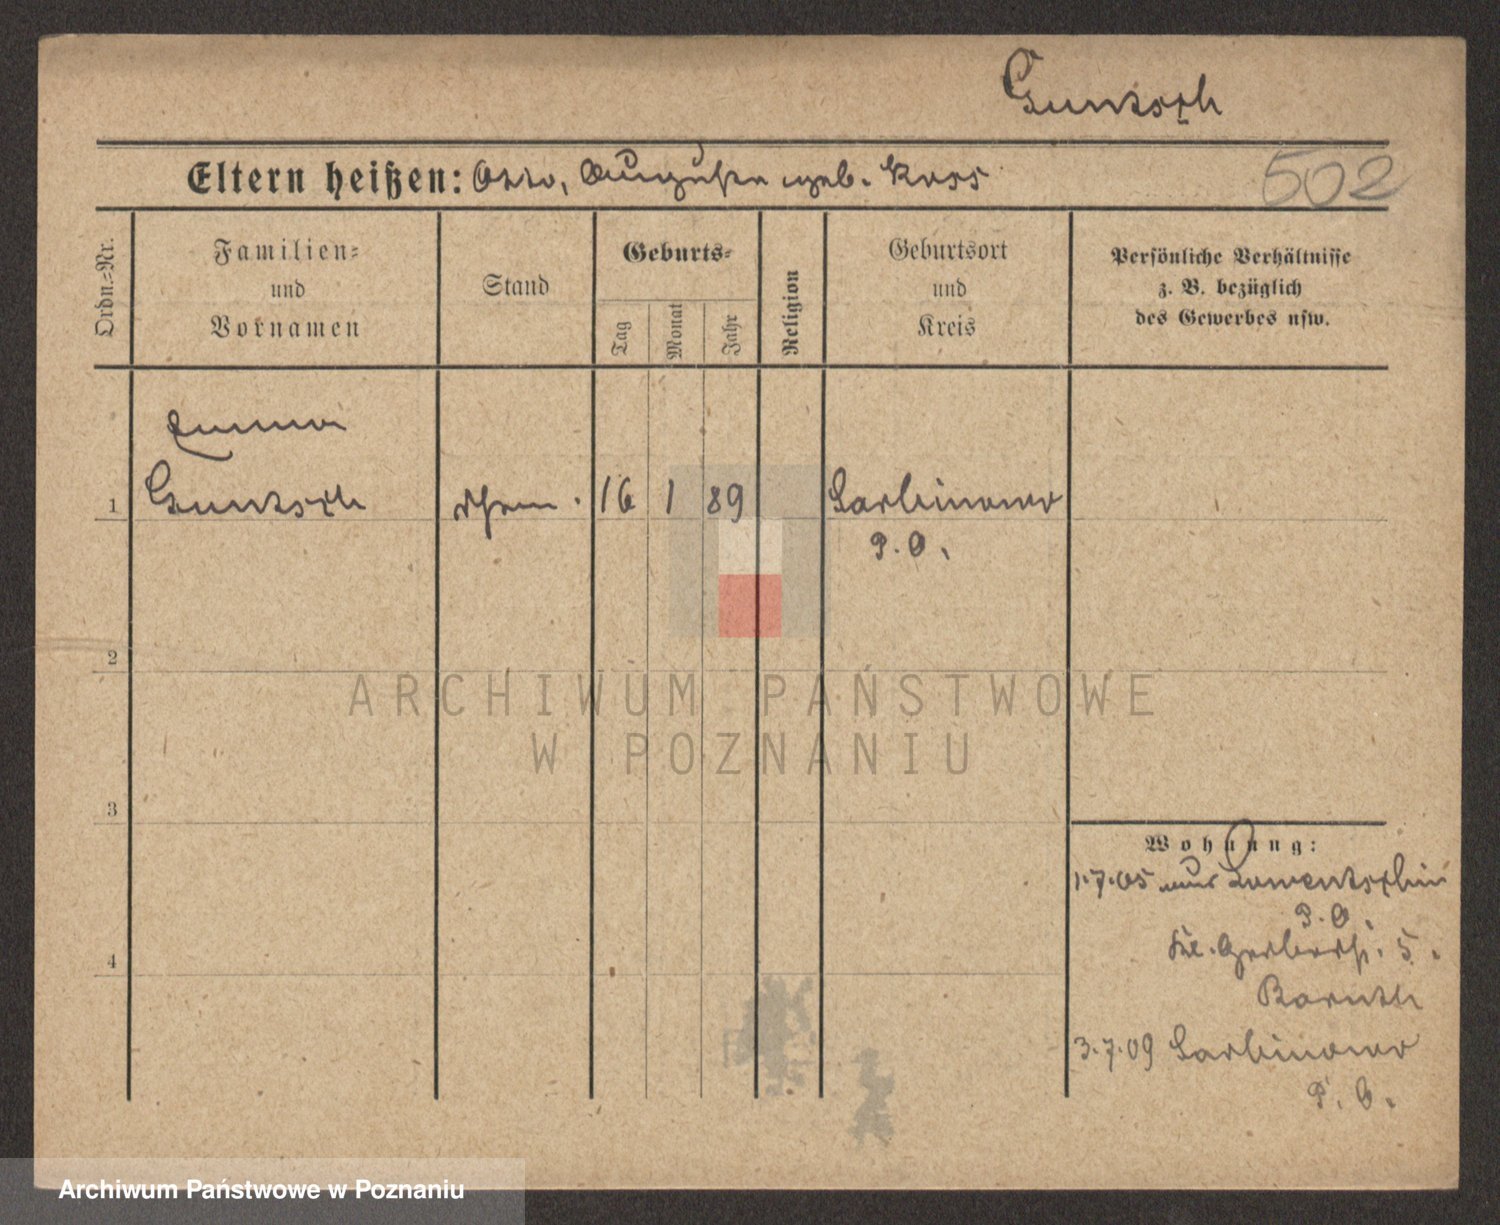 Guntsch
Eltern heißen: Otto, Auguste geb. Koss
502
Ordn.=Nr.
Familien=
und
Vornamen
Stand
Geburts=
Tag
Monat
Jahr
Religion
Geburtsort
und
Kreis
Persönliche Verhältnisse
z. B. bezüglich
des Gewerbes usw.
Emma
1 Guntsch 16 1 89 Sarbinowo
P. O.
2
ARCHIWUM PAŃSTWOWE
W POZNANIU
3
4
Wohnung:
1.7.05 aus
P. O.
Kl. Gerberstr. 5.
3.7.09 Sarbinowo
P. O.
Archiwum Państwowe w Poznaniu